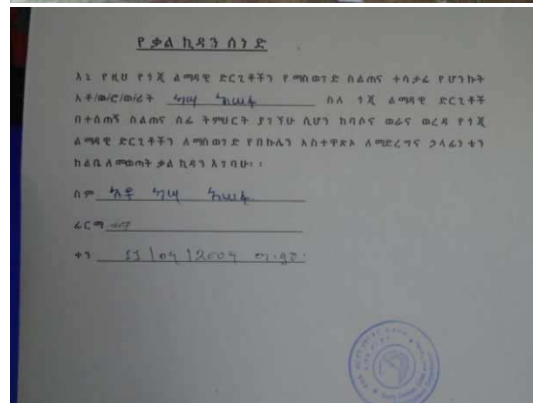 የቃል ኪዳን ሰነድ
እኔ የዚህ የጎጂ ልማዳዊ ድርጊቶችን የማስወገድ ስልጠና ተሳታፊ የሆንኩት
አቶ/ወ/ሮ/ወ/ሪት ስለ ጎጂ ልማዳዊ ድርጊቶች
በተሰጠኝ ስልጠና ሰፊ ትምህርት ያገኘሁ ሲሆን ከባሶና ወራና ወረዳ የጎጂ
ልማዳዊ ድርጊቶችን ለማስወገድ የበኩሌን አስተዋጽኦ ለማድረግና ኃላፊነቴን
ከልቤ ለመወጣት ቃል ኪዳን እገባሁ፡፡
ስም አቶ
ፊርማ
ቀን 11/09/2009 ዓ.ም.